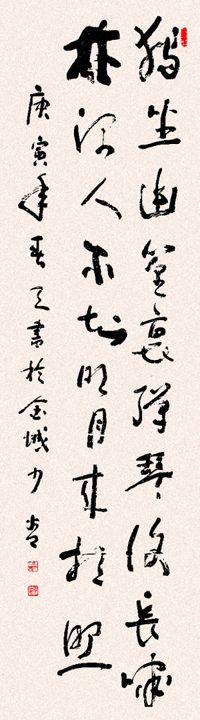 獨坐幽篁裏彈琴復長嘯
林深人不知明月來相照
庚寅年春書於金城少